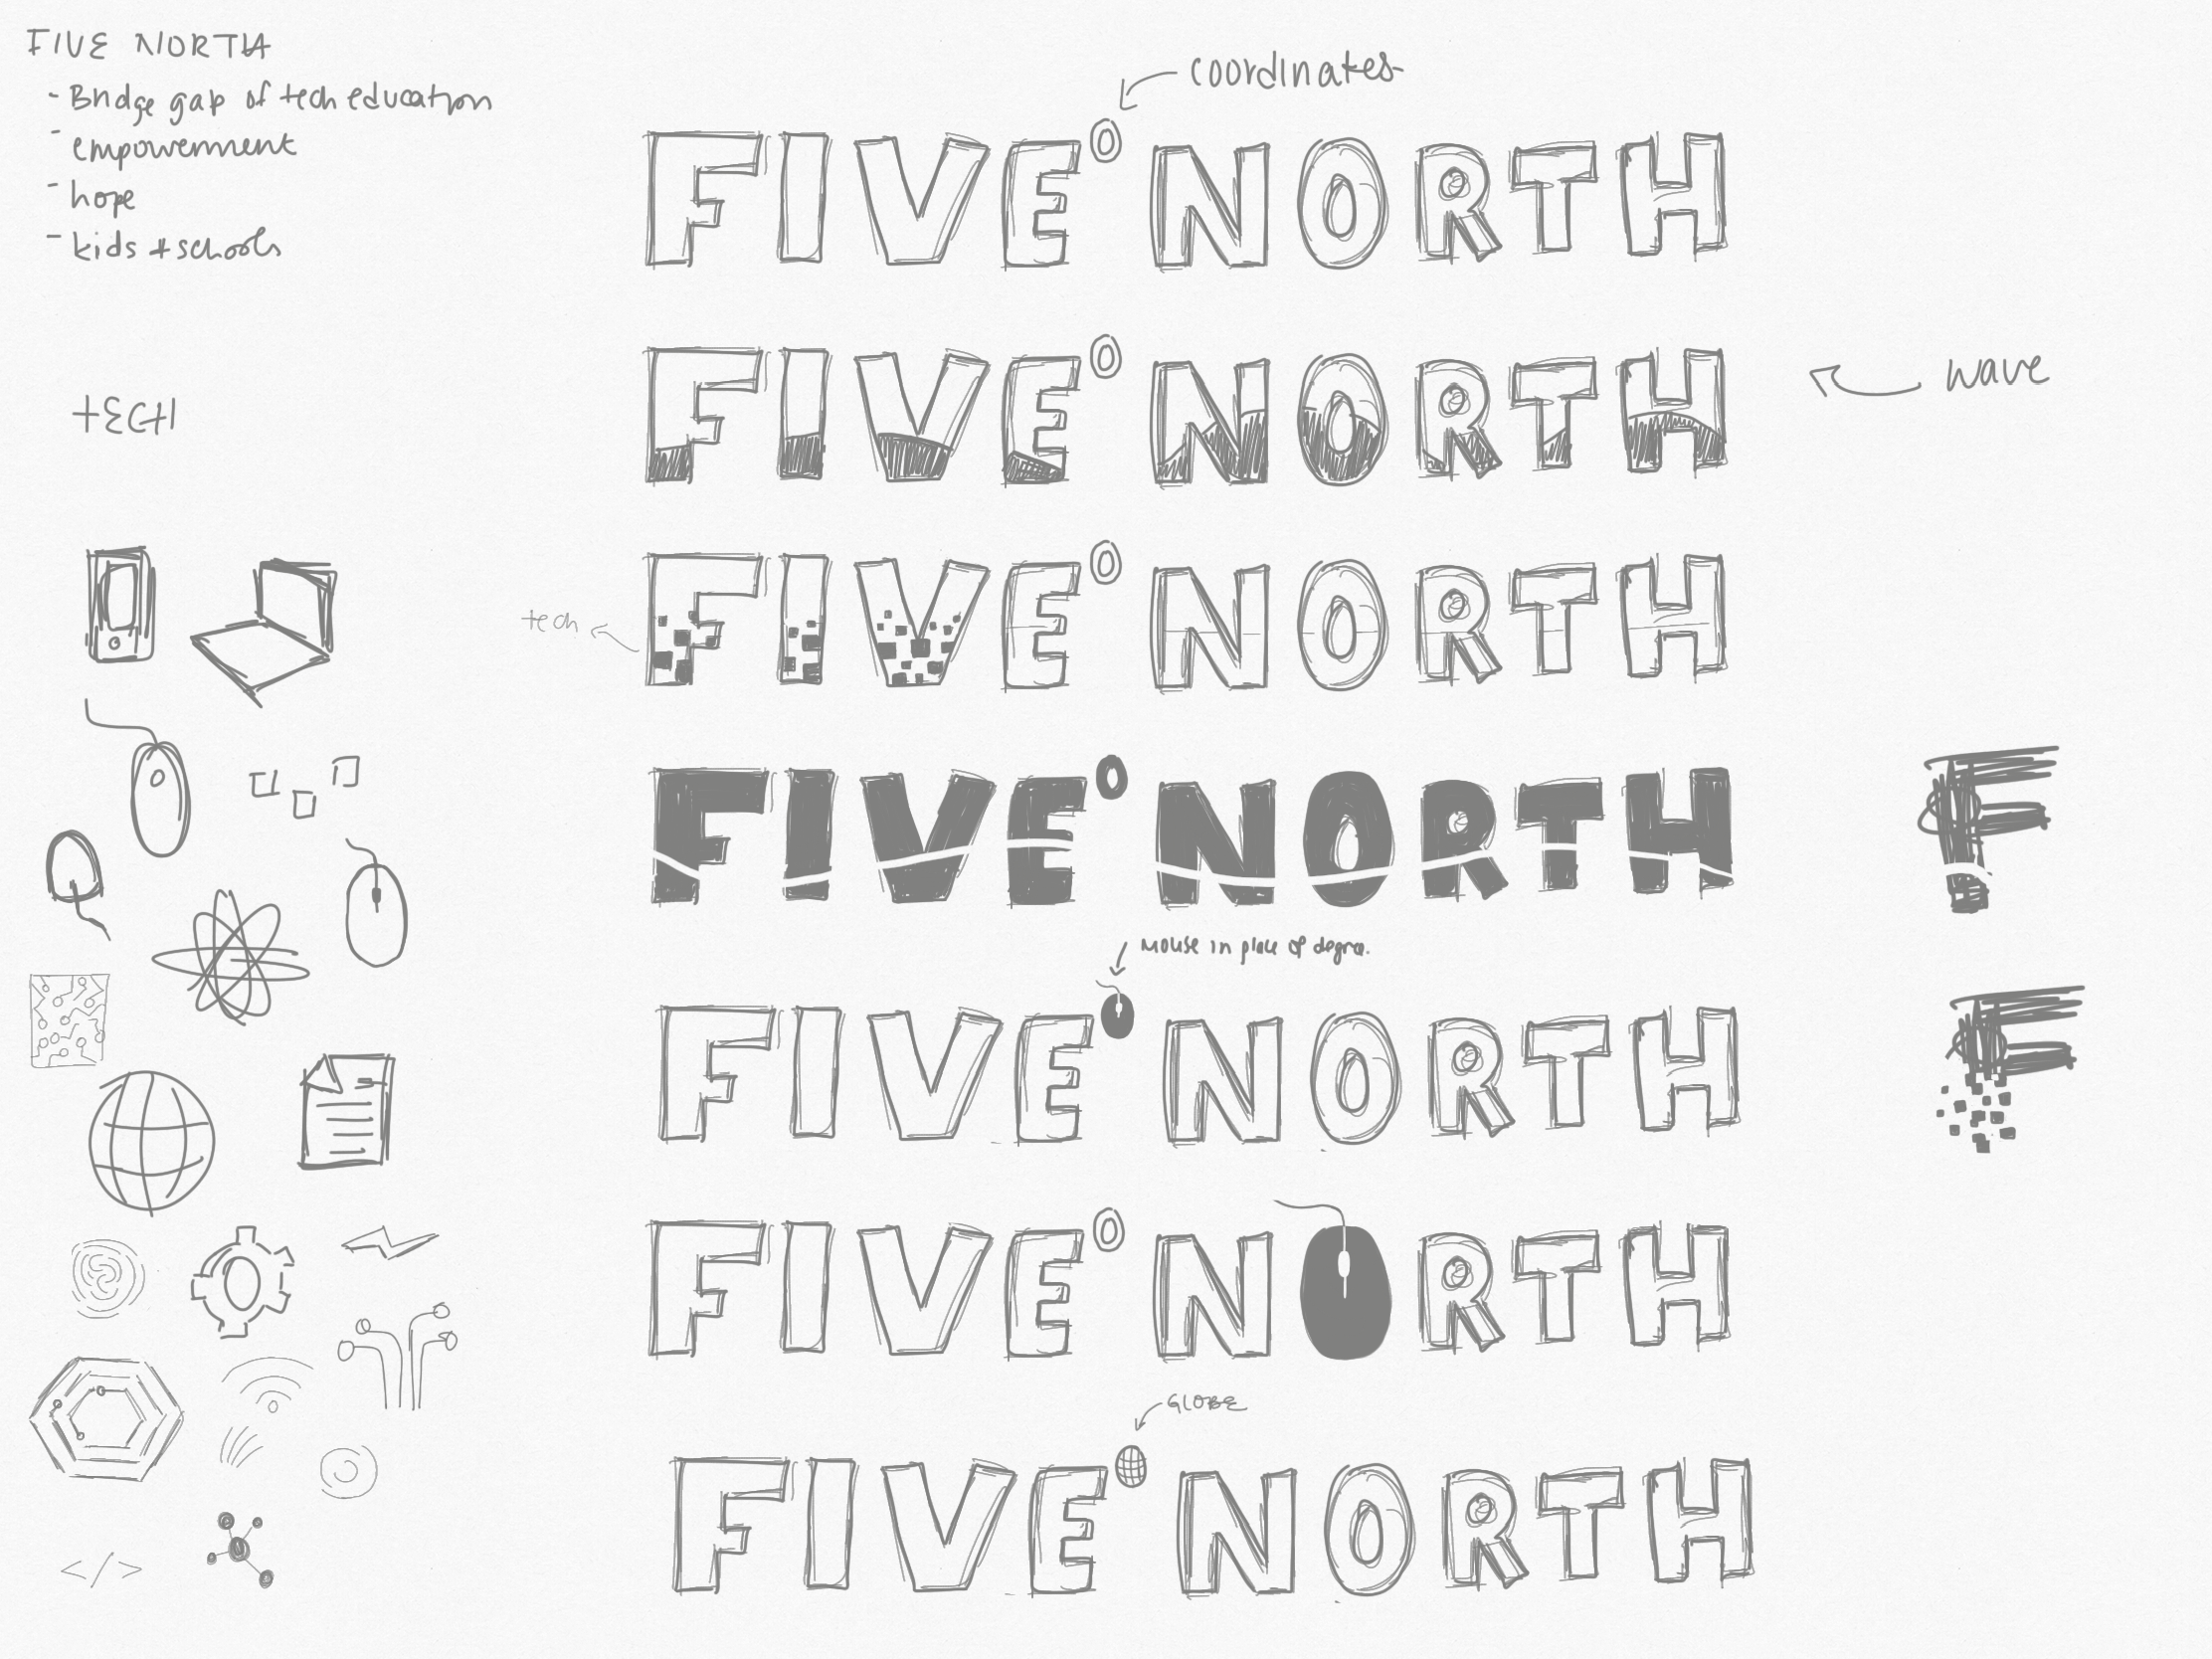 FIVE NORTH
- Bridge gap of tech education
- empowerment
- hope
- kids + schools
TECH
coordinates
FIVE° NORTH
wave
FIVE° NORTH
tech
FIVE° NORTH
FIVE° NORTH
F
mouse in place of degree.
FIVE NORTH
F
FIVE° NORTH
GLOBE
FIVE NORTH
</>